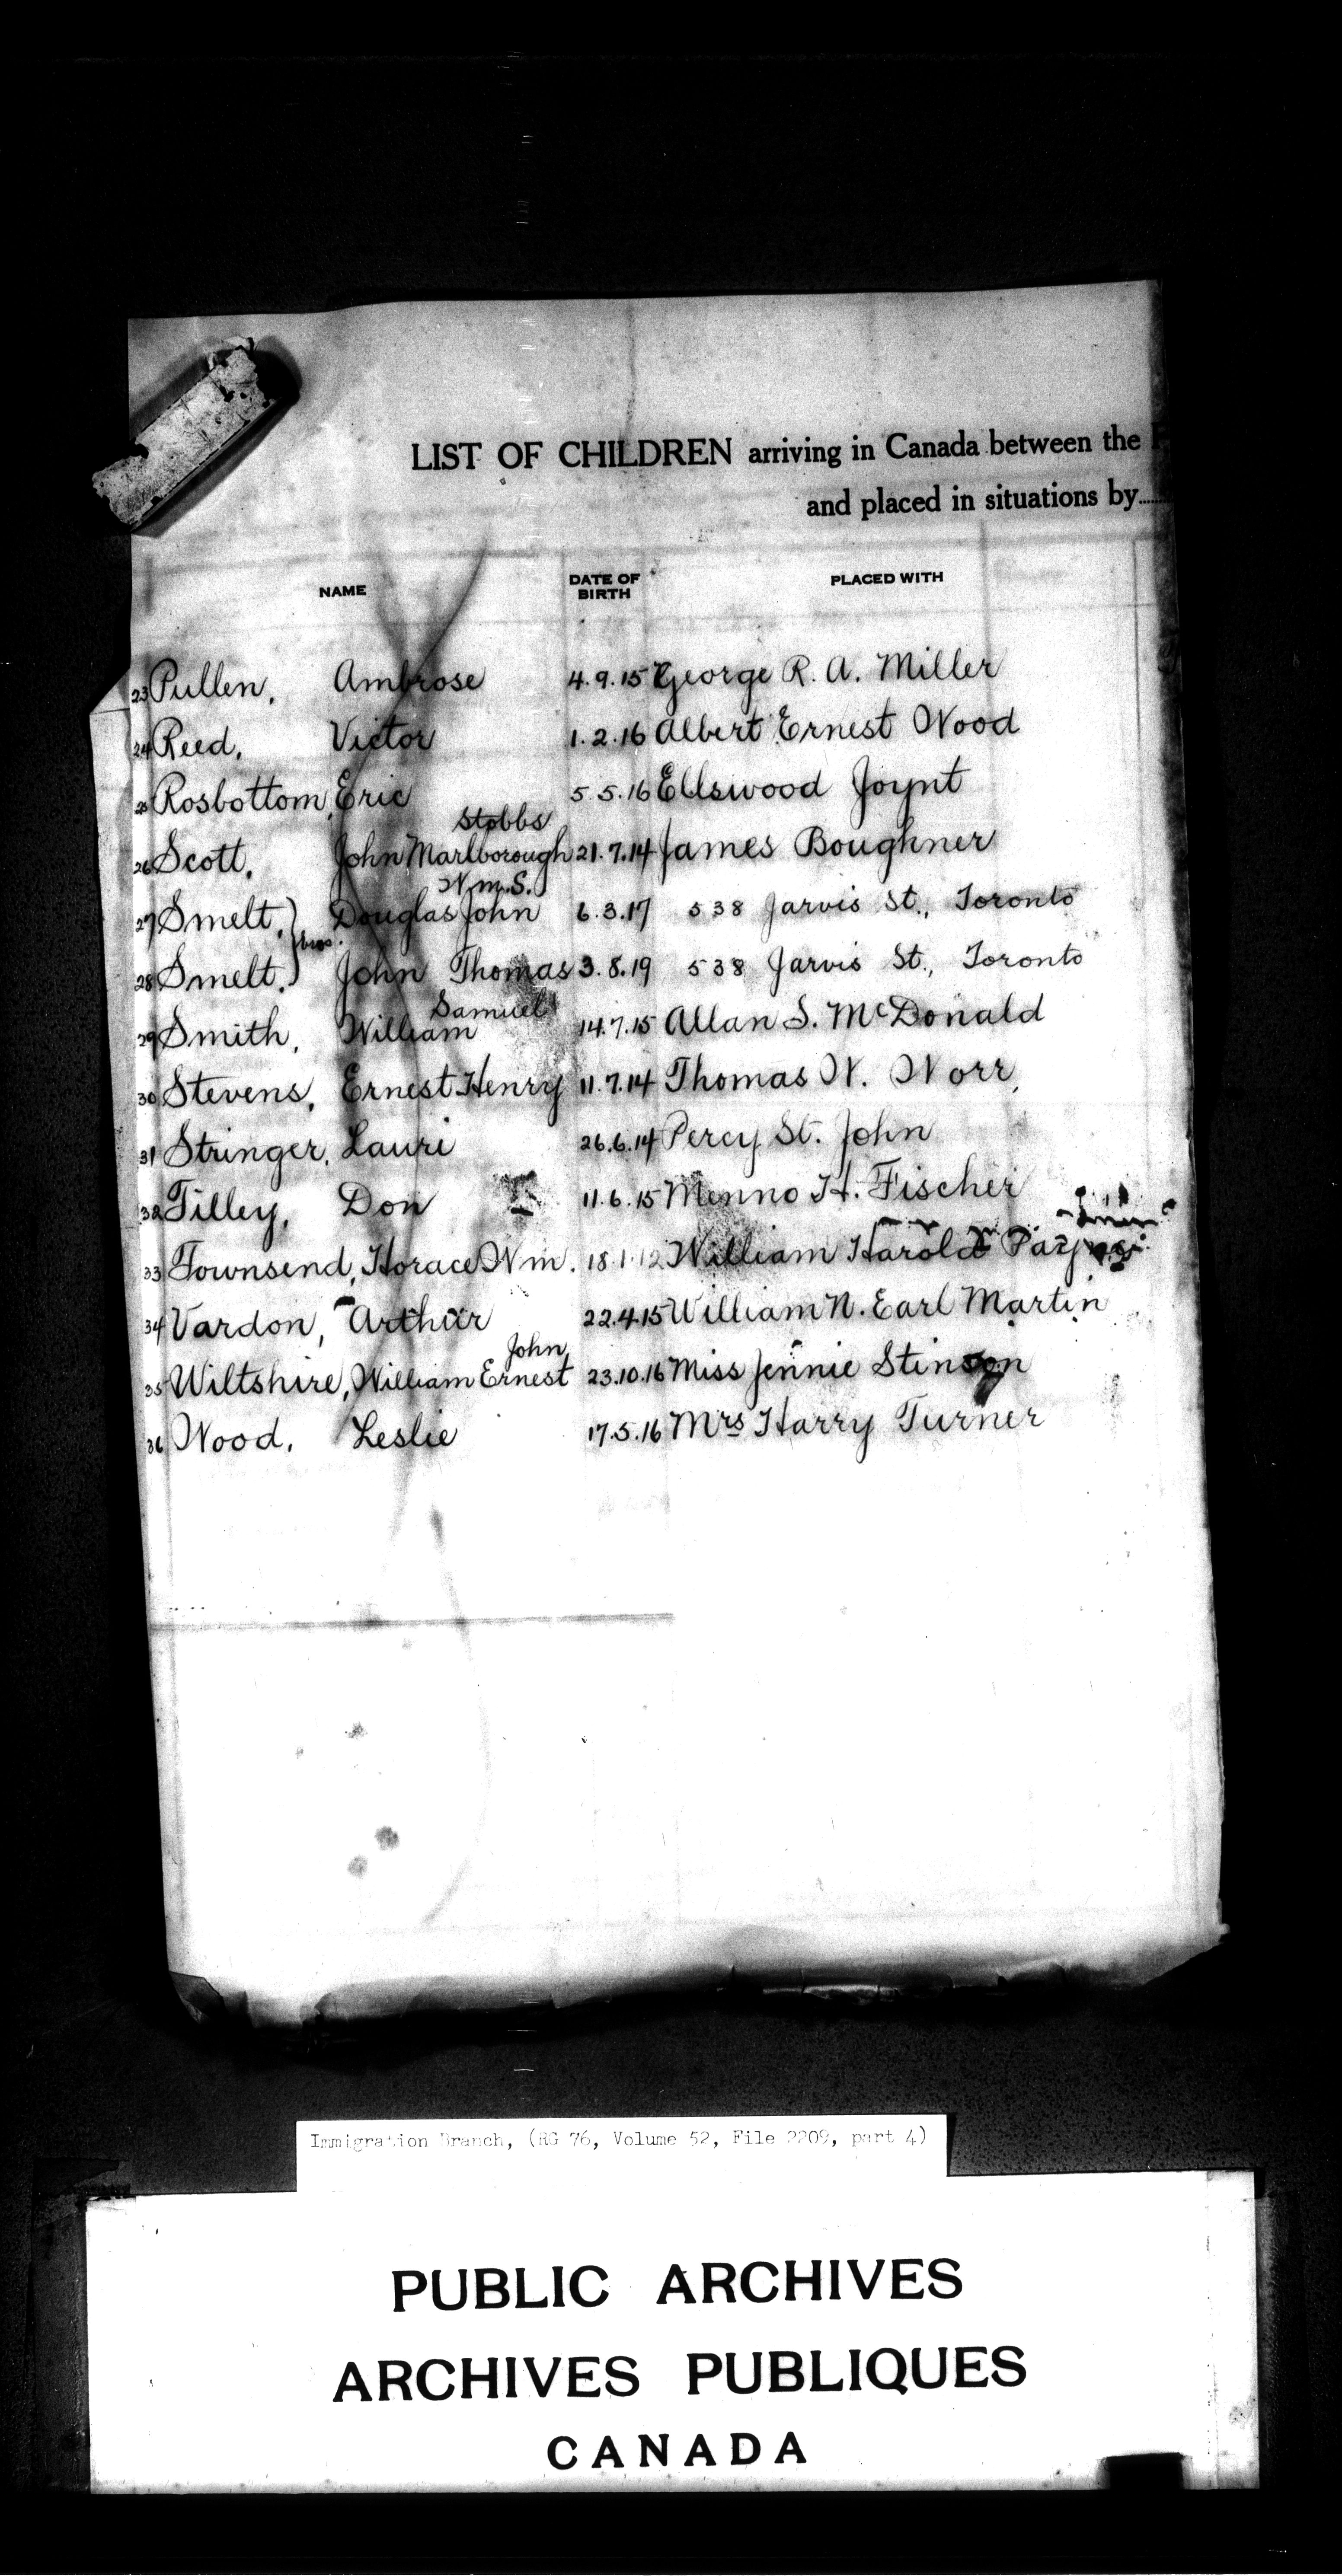 LIST OF CHILDREN arriving in Canada between the
and placed in situations by......
NAME DATE OF BIRTH PLACED WITH
23 Pullen, Ambrose 4.9.15 George R. A. Miller
24 Reed, Victor 1.2.16 Albert Ernest Wood
25 Rosbottom, Eric 5.5.16 Ellswood Joynt
Stobbs
26 Scott, John Marlborough 21.7.14 James Boughner
Wm. S.
27 Smelt, Douglas John 6.3.17 538 Jarvis St., Toronto
bros.
28 Smelt, John Thomas 3.8.19 538 Jarvis St., Toronto
Samuel
29 Smith, William 14.7.15 Allan S. McDonald
30 Stevens, Ernest Henry 11.7.14 Thomas W. Worr
31 Stringer, Lauri 26.6.14 Percy St. John
32 Tilley, Don 11.6.15 Menno H. Fischer
33 Townsend, Horace Wm. 18.1.12 William Harold
34 Vardon, Arthur 22.4.15 William N. Earl Martin
John
35 Wiltshire, William Ernest 23.10.16 Miss Jennie Stinson
36 Wood, Leslie 17.5.16 Mrs Harry Turner
Immigration Branch, (RG 76, Volume 52, File 2209, part 4)
PUBLIC ARCHIVES
ARCHIVES PUBLIQUES
CANADA